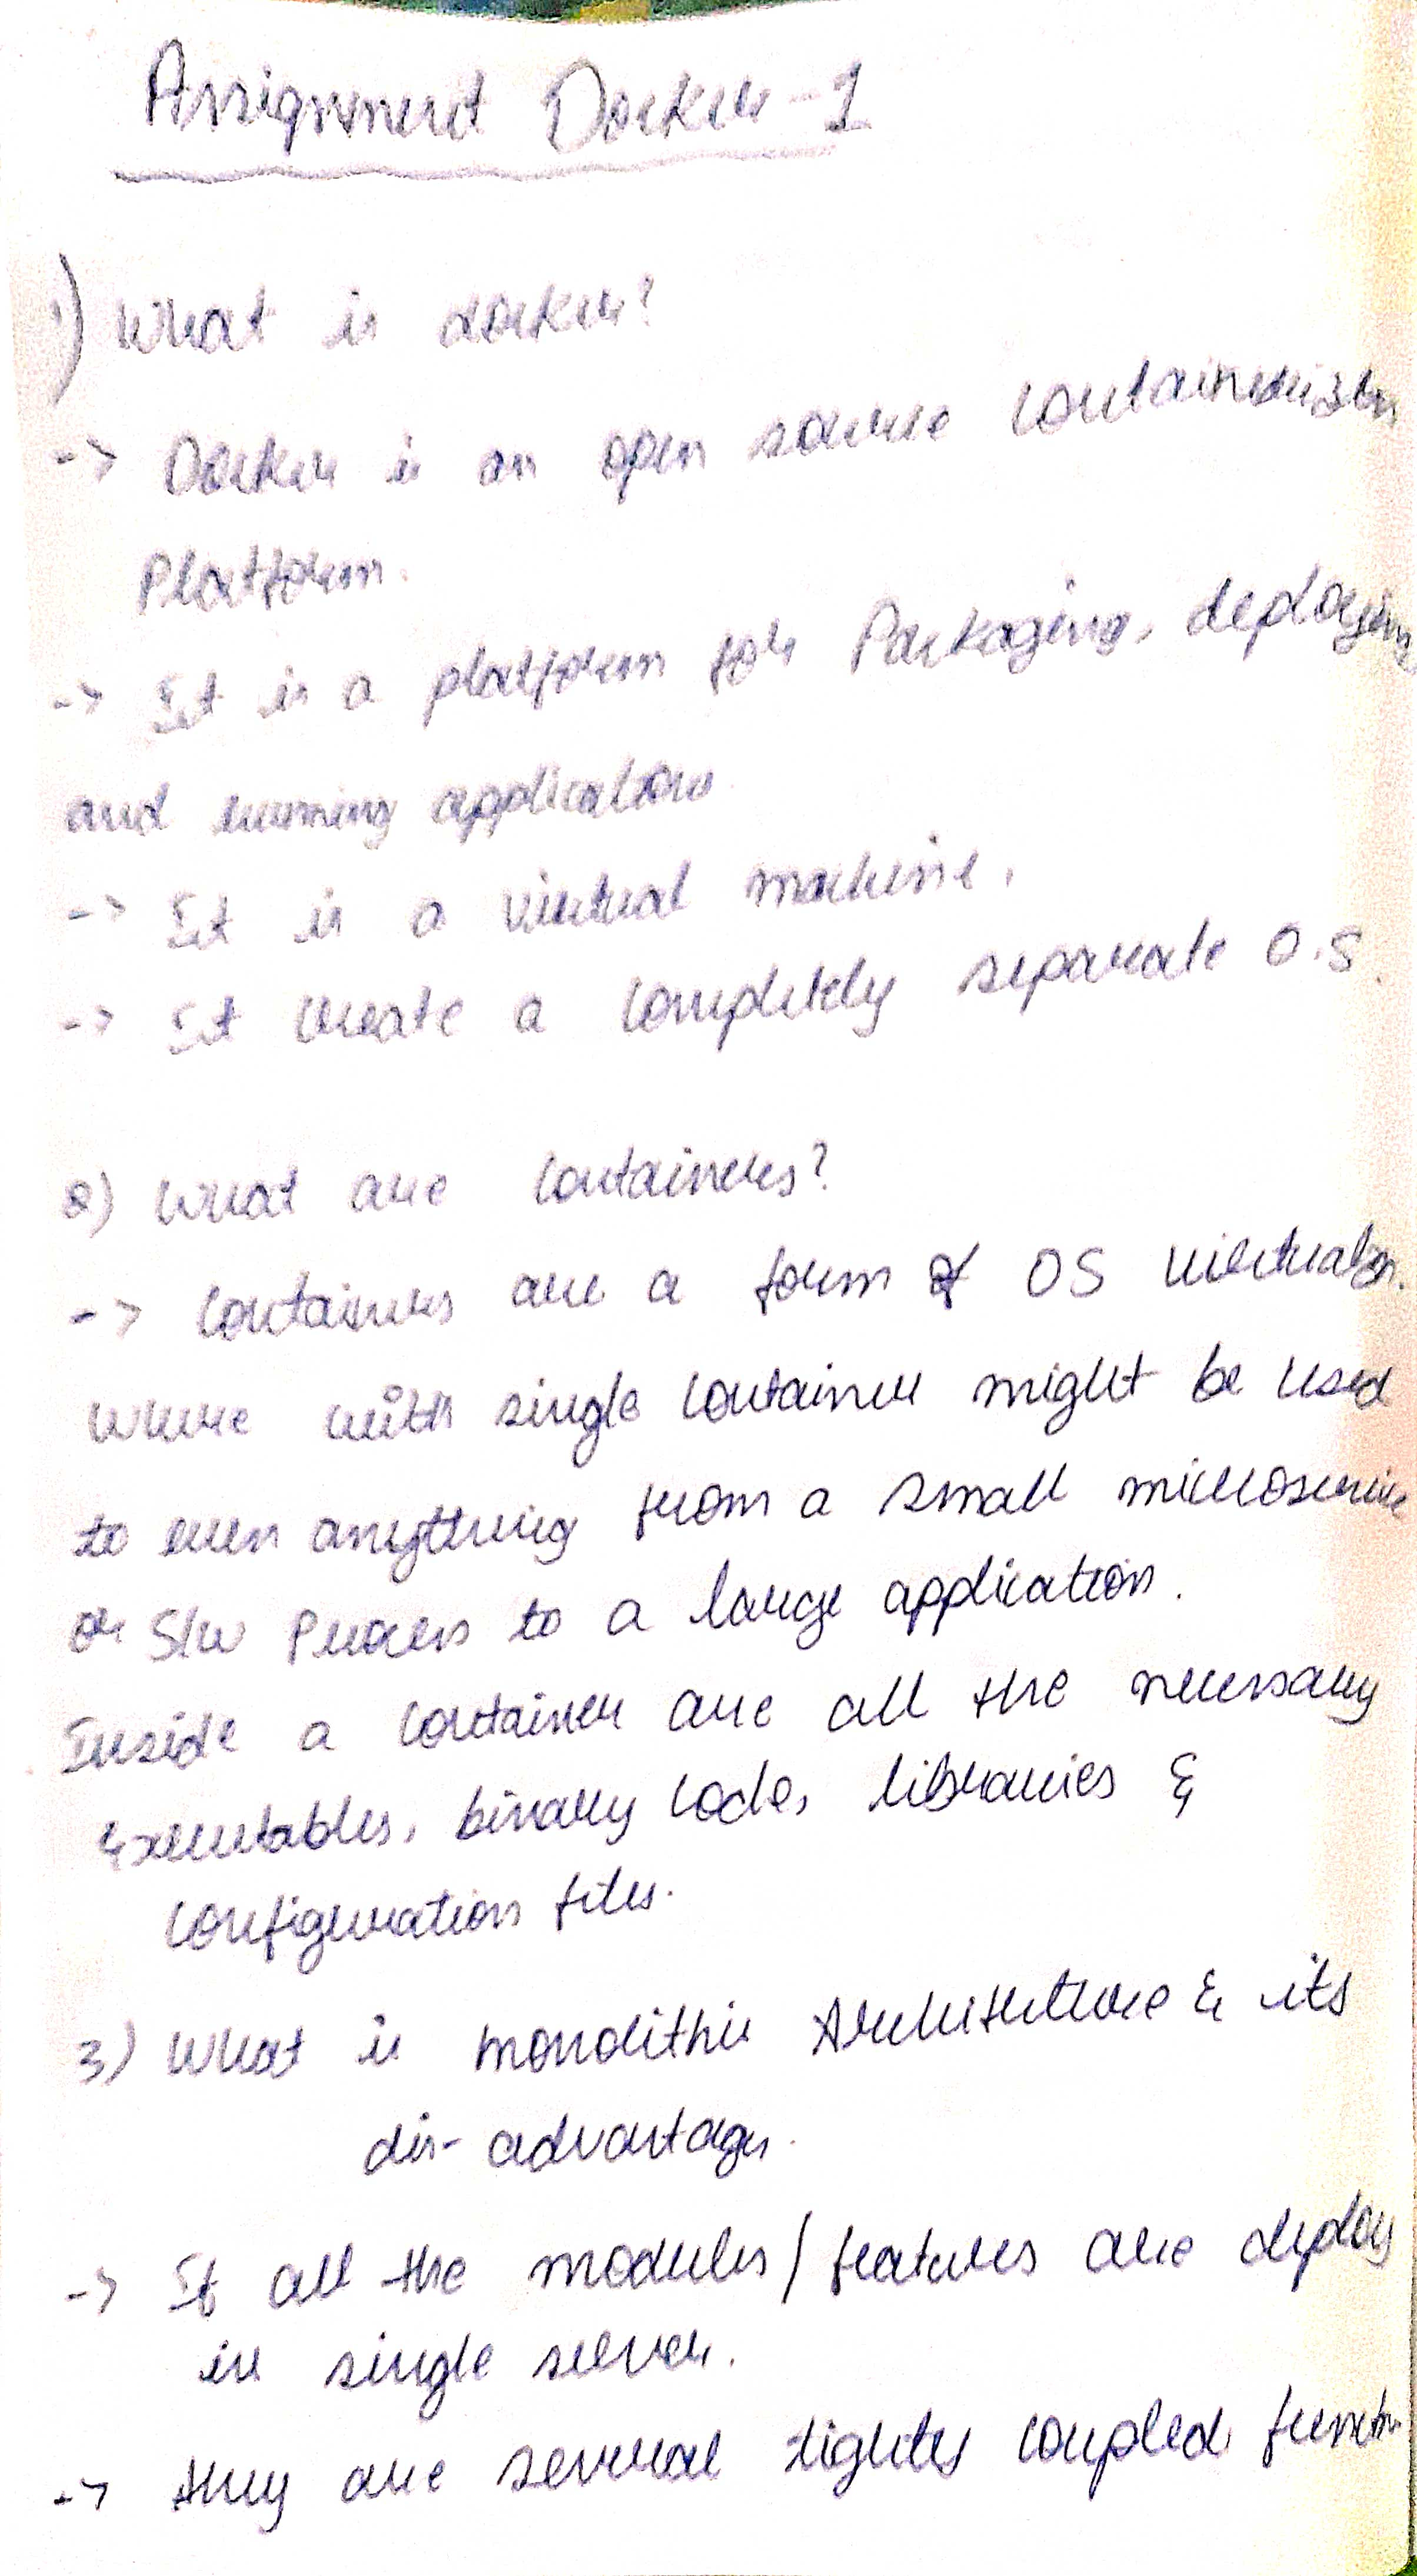 Assignment Docker-1
1) What is docker?
-> Docker is an open source containerization
Platform.
-> It is a platform for Packaging, deploying
and running applications.
-> It is a virtual machine.
-> It create a completely separate O.S.
2) What are containers?
-> Containers are a form of OS virtualzn.
where with single container might be used
to even anything from a small microservice
or S/w Process to a large application.
Inside a container are all the necessary
Executables, binary code, libraries &
configuration files.
3) What is monolithic Architecture & its
dis-advantages.
-> If all the modules/features are deploy
in single server.
-> they are several tightly coupled functn